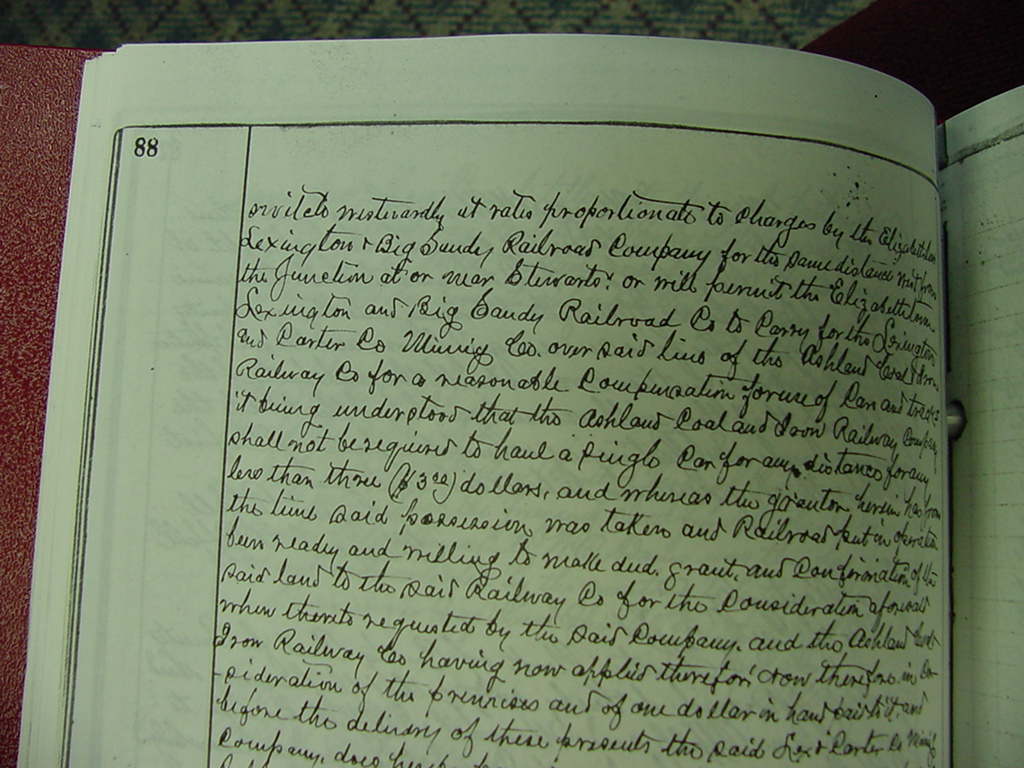 88
westwardly at rates proportionate to charges by the Elizabethtown
Lexington & Big Sandy Railroad Company for the same distance west from
the Junction at or near Stewarts: or will permit the Elizabethtown
Lexington and Big Sandy Railroad Co to Carry for the Lexington
and Carter Co Mining Co. over said line of the Ashland Coal & Iron
Railway Co for a reasonable Compensation for use of Cars and tracks
it being understood that the Ashland Coal and Iron Railway Company
shall not be required to haul a single Car for any distance for any
less than three ($3 00) dollars, and whereas the grantor herein has from
the time said possession was taken and Railroad put in operation
been ready and willing to make deed, grant, and Confirmation of the
said land to the said Railway Co for the Consideration aforesaid
when thereto requested by the said Company, and the Ashland Coal &
Iron Railway Co having now applied therefor: now therefore in Con-
-sideration of the premises and of one dollar in hand paid to it, and
before the delivery of these presents the said Lex & Carter Co Mining
Company, does